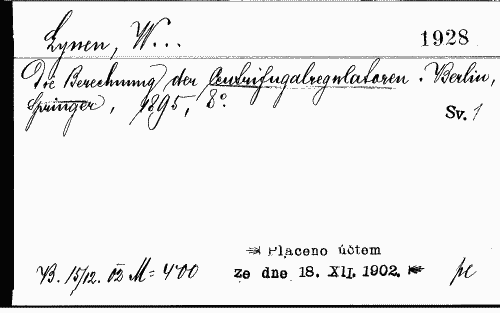 Lynen, W...
1928
Die Berechnung der Centrifugalregulatoren. Berlin,
Springer, 1895, 8°.
Sv. 1
Placeno účtem
B. 15/12. 02 M = 4'00
ze dne 18. XII. 1902.
pc